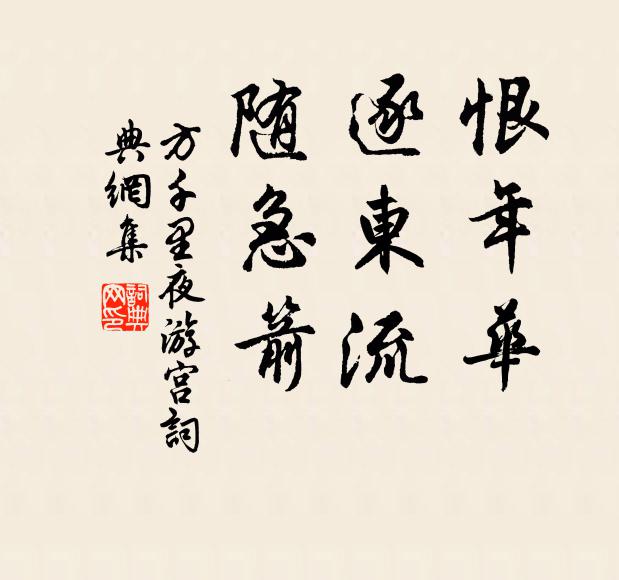 恨年華
逐東流
随急箭
方千里夜游宫詞
典網集
詞典
网印